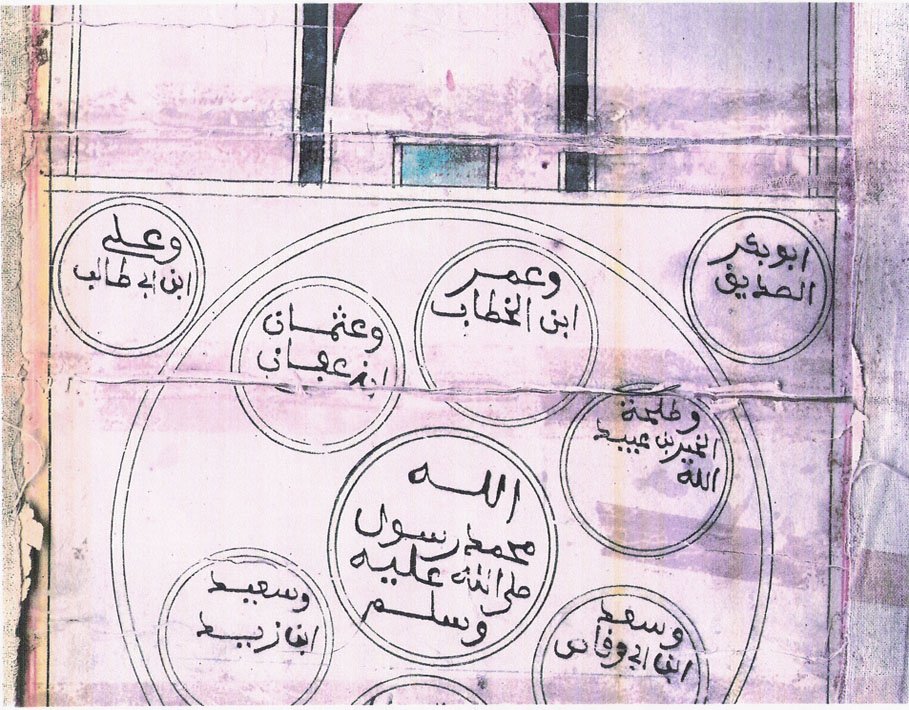 ابوبكر
الصديق
وعمر
ابن الخطاب
وعثمان
ابن عفان
وعلي
ابن ابي طالب
وطلحة
الخير بن عبيد
الله
الله
محمد رسول
صلى الله عليه
وسلم
وسعد
ابن ابي وقاص
وسعيد
ابن زيد